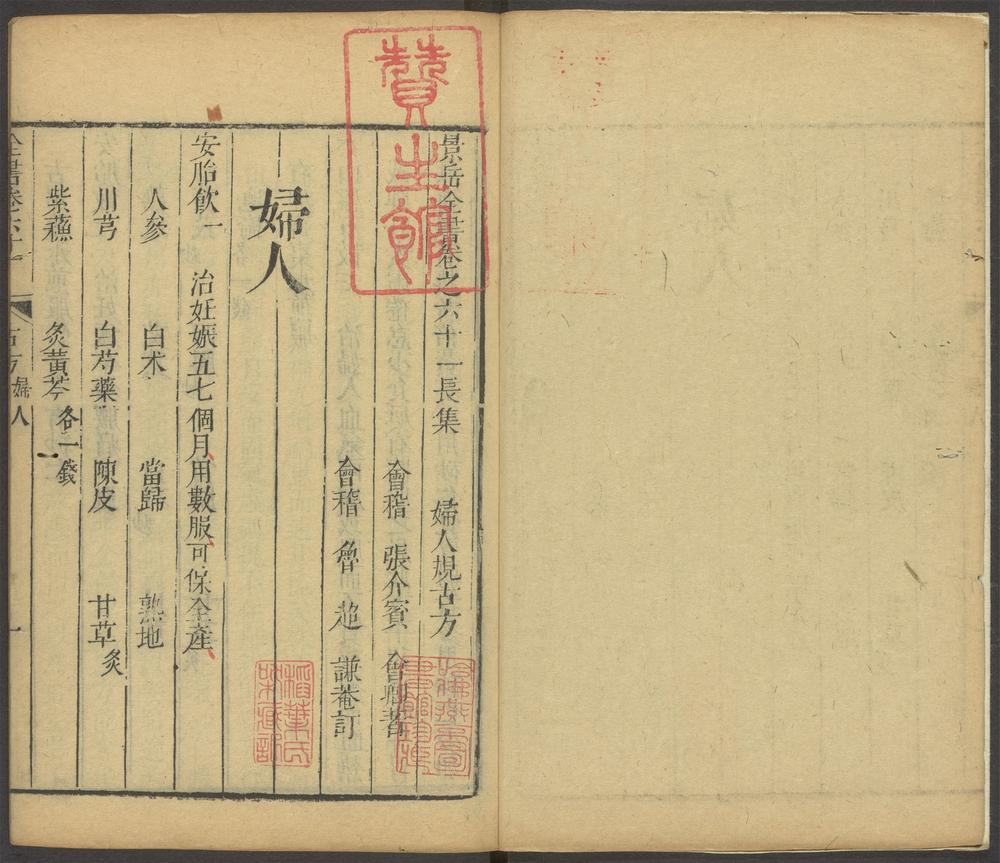 景岳全書卷之六十一長集 婦人規古方
會稽 張介賓 會卿著
會稽 魯超 謙菴訂
婦人
安胎飲一 治妊娠五七個月用數服可保全產
人參 白朮 當歸 熟地
川芎 白芍藥 陳皮 甘草炙
紫蘇 炙黃芩各一錢
全書卷六十一 古方 婦人 一
贊生館
稻葉氏